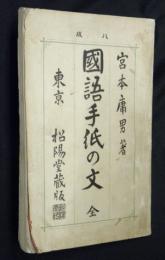 宮本庸男著
國語手紙の文 全
東京 松陽堂藏版